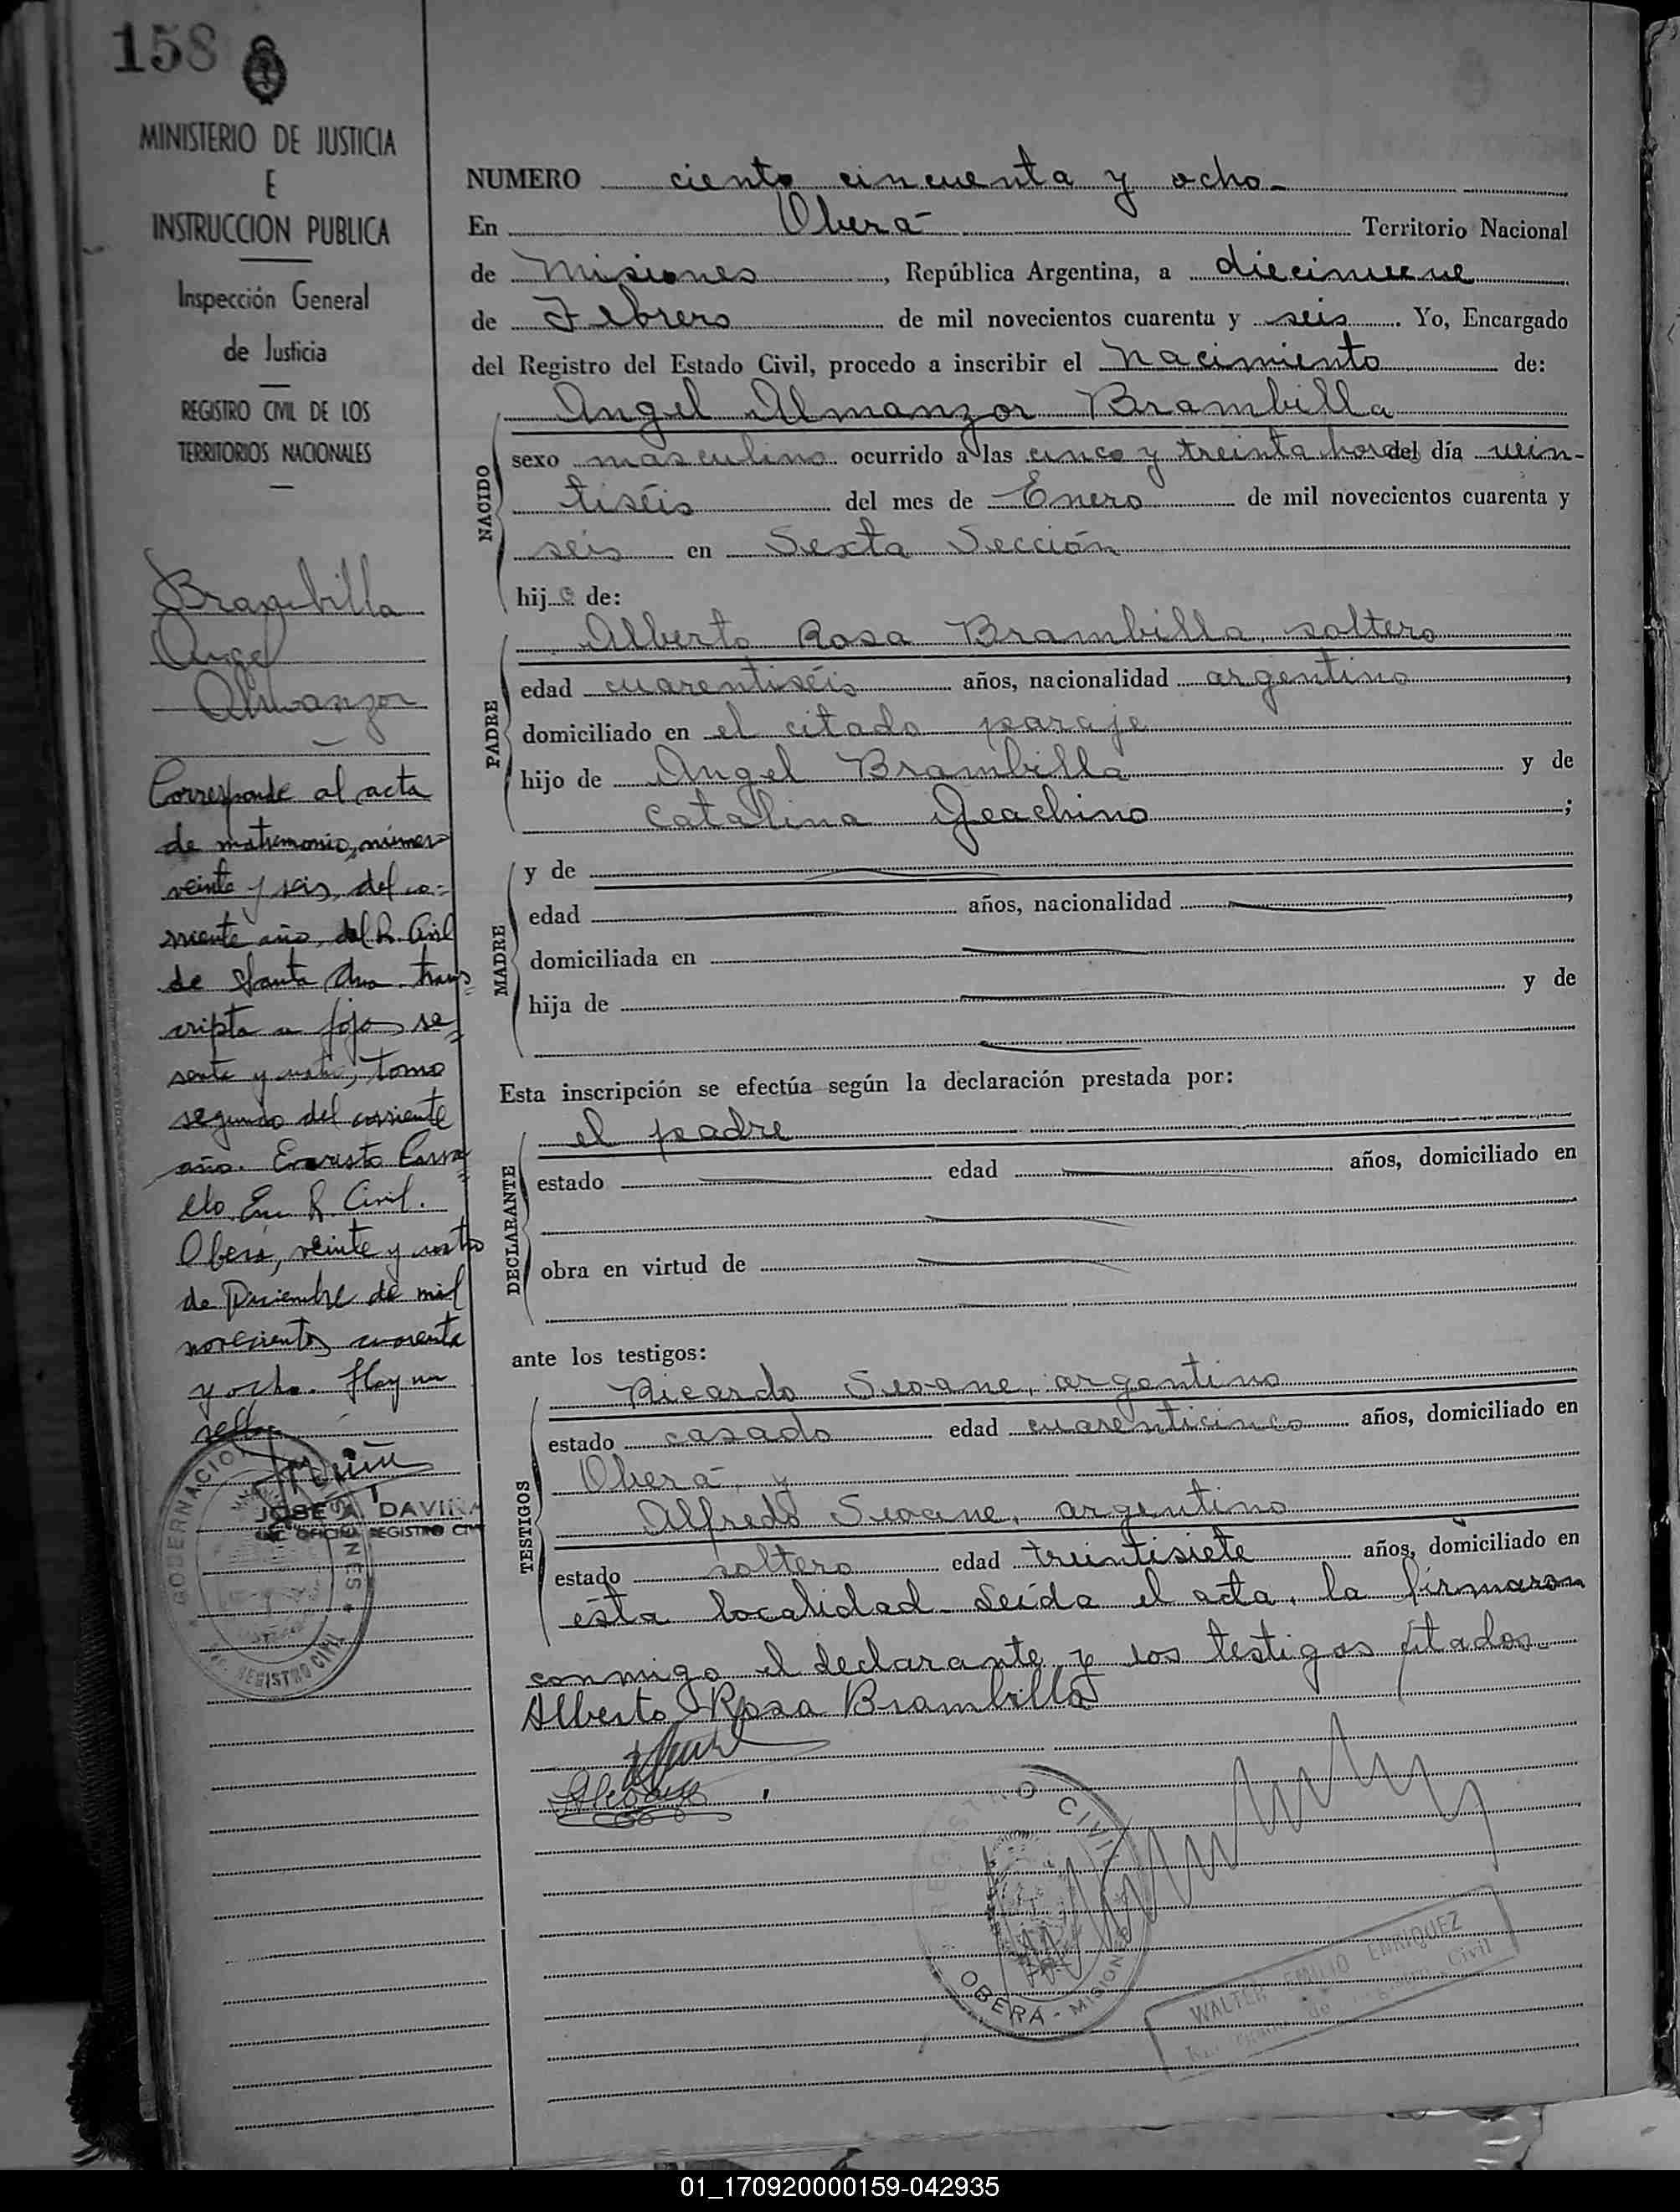 158
MINISTERIO DE JUSTICIA
E
INSTRUCCION PUBLICA
Inspección General
de Justicia
REGISTRO CIVIL DE LOS
TERRITORIOS NACIONALES
Brambilla
Angel
Almanzor
Corresponde al acta
de matrimonio, número
veinte y seis, del co=
rriente año, del R. Civil
de Santa Ana. trans=
cripta a fojas se=
senta y cuatro, tomo
segundo del corriente
año. Evaristo
R. Civil.
Oberá, veinte y cuatro
de Diciembre de mil
novecientos cuarenta
y ocho. Hay un
sello.
GOBERNACION MISIONES
JOSE A. DAVIÑA
ENC. OFICINA REGISTRO CIVIL
REGISTRO CIVIL
NUMERO ciento cincuenta y ocho-
En Oberá- Territorio Nacional
de Misiones, República Argentina, a diecinueve
de Febrero de mil novecientos cuarenta y seis. Yo, Encargado
del Registro del Estado Civil, procedo a inscribir el Nacimiento de:
Angel Almanzor Brambilla
NACIDO
sexo masculino ocurrido a las cinco y treinta horas del día vein-
tiséis del mes de Enero de mil novecientos cuarenta y
seis en Sexta Sección
hijo de:
Alberto Rosa Brambilla, soltero
PADRE
edad cuarentiséis años, nacionalidad argentino,
domiciliado en el citado paraje
hijo de Angel Brambilla y de
Catalina Geachino;
MADRE
y de
edad años, nacionalidad,
domiciliada en
hija de y de
Esta inscripción se efectúa según la declaración prestada por:
el padre
DECLARANTE
estado edad años, domiciliado en
obra en virtud de
ante los testigos:
Ricardo Seoane, argentino
TESTIGOS
estado casado edad cuarenticinco años, domiciliado en
Oberá, y
Alfredo Seoane, argentino
estado soltero edad treintisiete años, domiciliado en
ésta localidad. Leída el acta, la firmaron
conmigo el declarante y los testigos citados.
Alberto Rosa Brambilla
REGISTRO CIVIL
OBERA - MISIONES
WALTER EMILIO ENRIQUEZ
Civil
01_170920000159-042935